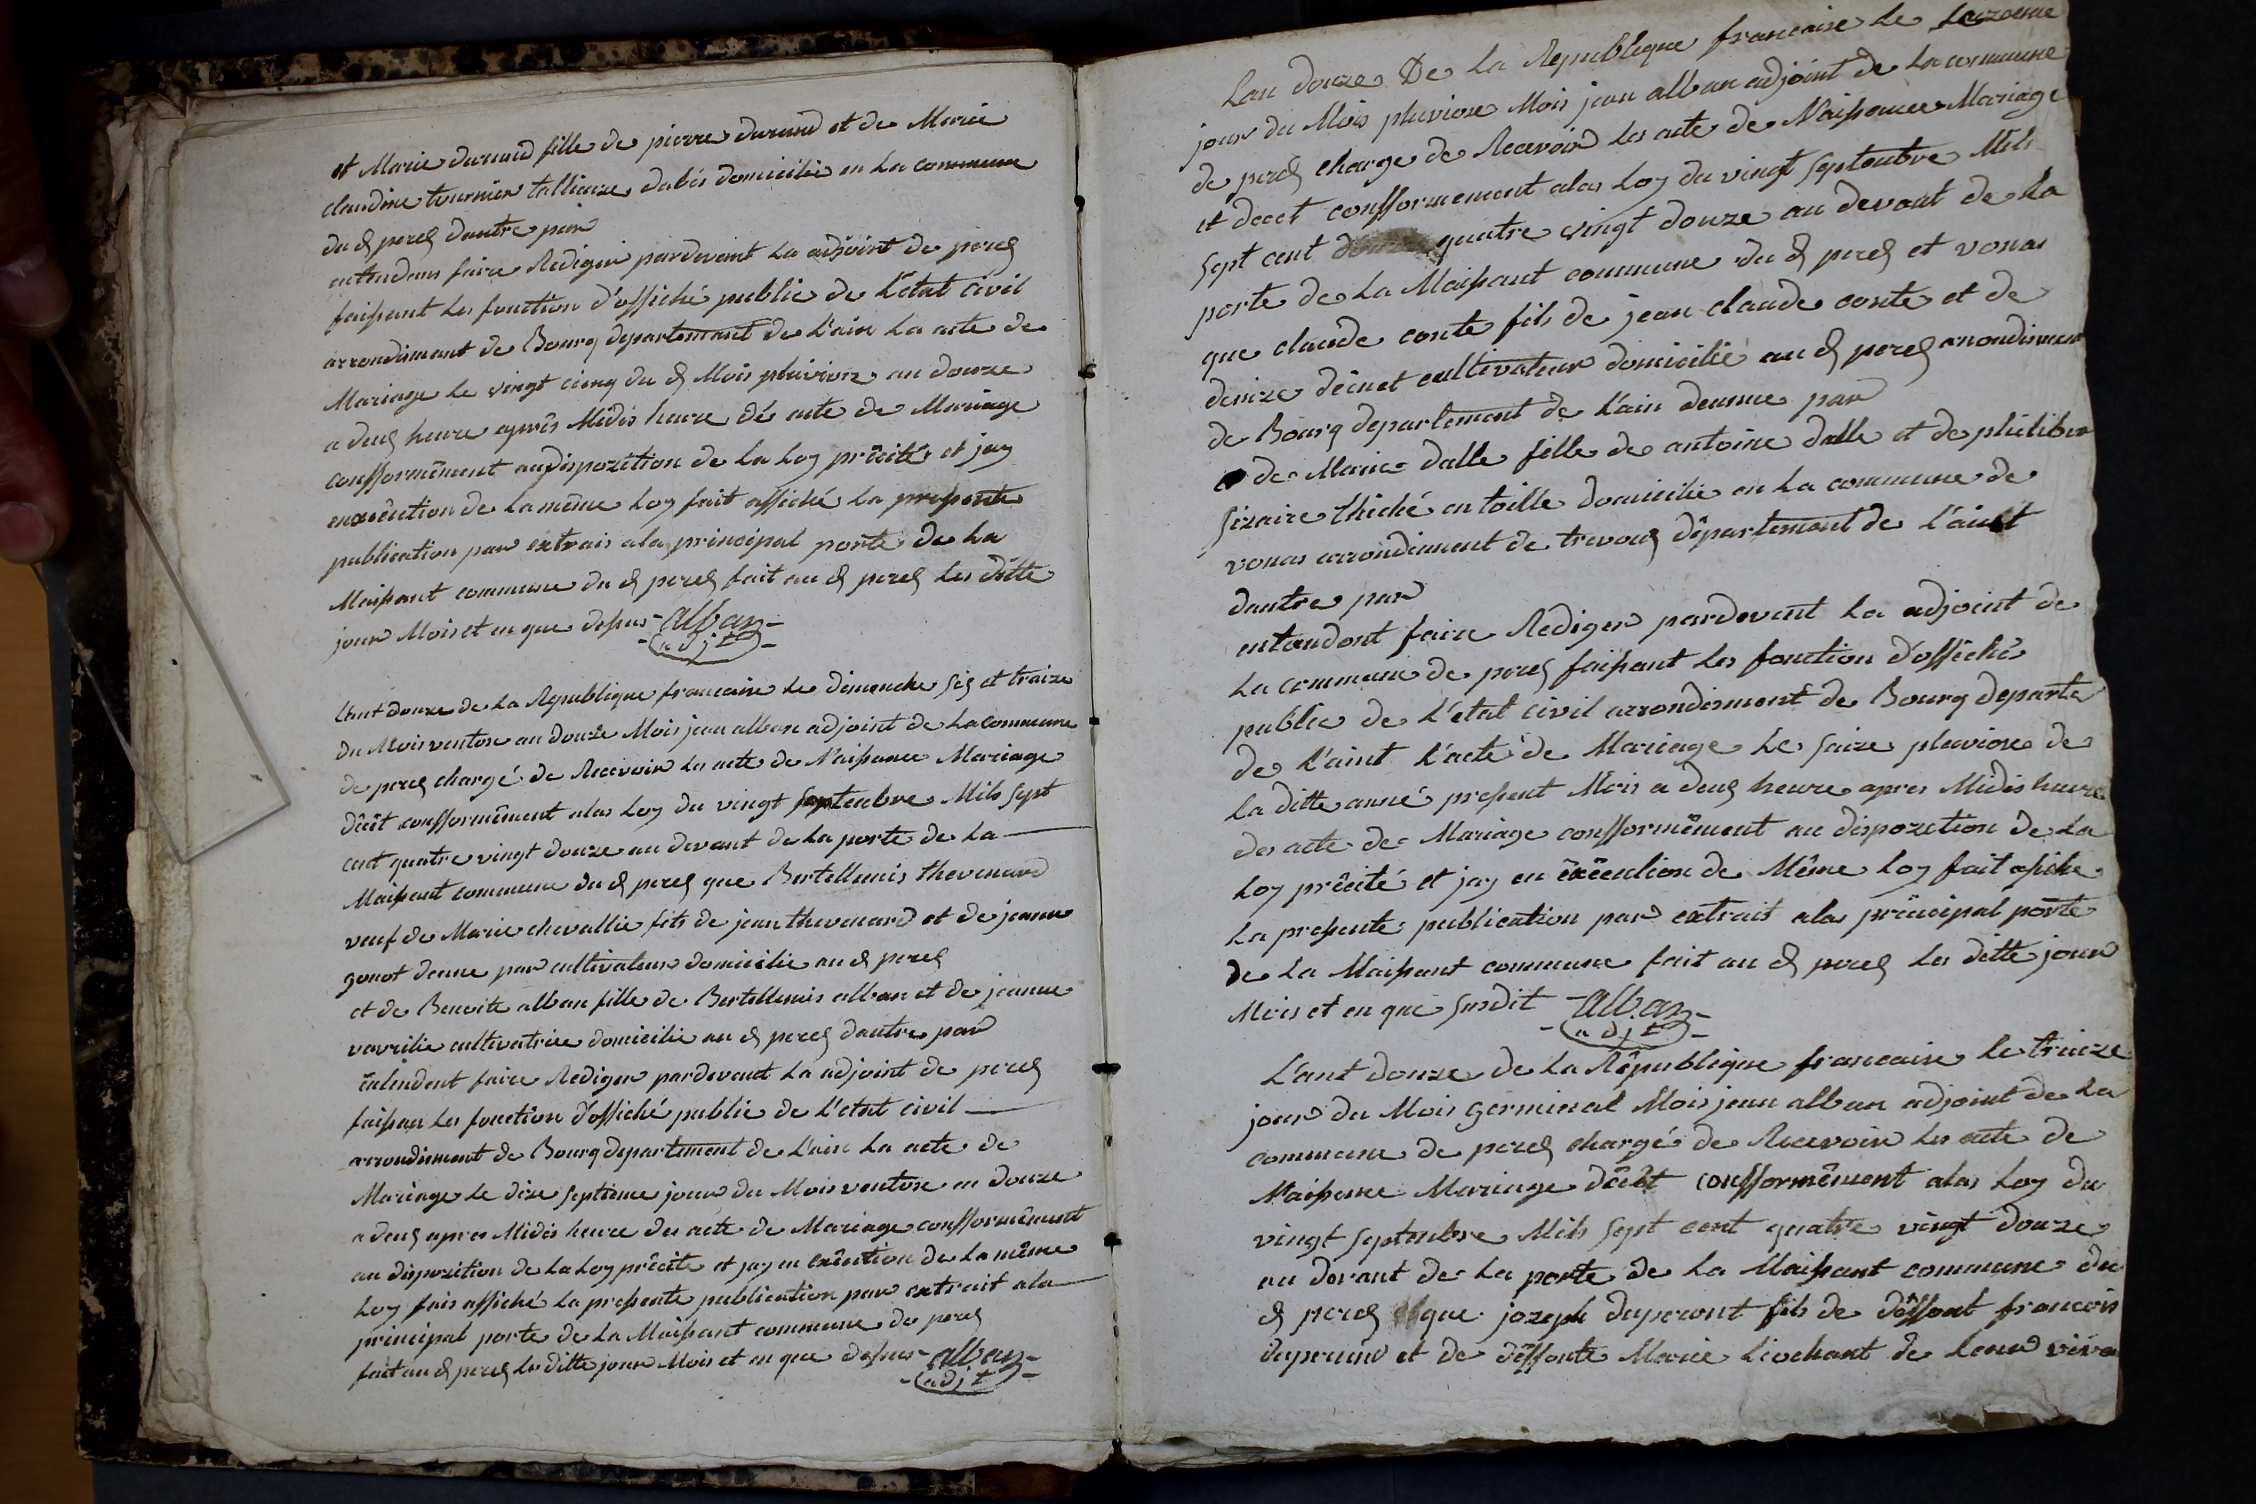 et Marie durand fille de pierre durand et de Marie
claudine tournier tallieuze dabés domicilié en la commune
du d perex dautre par
entendans faire Rediger pardevant la adjoint de perex
faissant les fonction d'offiché public de l'etat civil
arrondiment de Bourg departemant de l'ain la acte de
Mariage le vingt cinq du d Mois pluvioze an douze
a deux heure aprés Midis heure dés acte de Mariage
confformêment au dispozition de la Loy prêcité et jay
en exêcution de la même Loy fait affiché la pressente
publication par extrais ala principal porte de la
Maissant commune du d perex fait au d perex les ditte
jour Mois et en que dessus - alban -
- adjt -
L'ant douze de la Republique francaise le dimanche six et traize
du Mois ventose an douze Mois jean alban adjoint de la commune
de perex chargé de Recevoir les acte de Naissance Mariage
dêcêt confformêment alas Loy du vingt septembre Mils sept
cent quatre vingt douze au devant de la porte de la
Maissant commune du d perex que Bertellemis thevenard
veuf de Marie chevallie fils de jean thevenard et de jeanne
gonot deune par cultivateur domicilié au d perex
et de Benoite alban fille de Bertellemis alban et de jeanne
vavrilie cultivatrice domicilie au d perex dautre par
entendent faire Rediger pardevent la adjoint de perex
faissan les fonction d'offiché public de l'etat civil
arrondisment de Bourg departement de l'ain la acte de
Mariage le dixe septieme jour du Mois ventose en douze
a deux apres Midis heure des acte de Mariage confformêment
au dispozition de la Loy prêcité et jay en exêcution de la même
Loy fais affiché la pressente publication par extrait ala
principal porte de la Maissant commune de perex
fait au d perex les ditte jour Mois et en que dessus - alban -
- adjt -
Lan douze De la Republique francaise le
jour du Mois pluviose Mois jean alban adjoint de la commune
de perex charge de Recevoir les acte de Naissance Mariage
et decet confformement alas Loy du vingt septembre Mils
sept cent quatre vingt douze au devant de la
porte de la Maissant commune du d perex et vonas
que claude conte fils de jean claude conte et de
denize dêcinet cultivateur domicilié au d perex arrondiment
de Bourg departement de l'ain deunne par
de Marie dalle fille de antoine dalle et de philiber
sizaire thiché en toille domicilie en la commune de
vonas arrondiment de trevoux dêpartement de l'ain
dautre par
entandont faire Rediger pardevent la adjoint de
la commune de perex faissant les fonction d'offichés
public de l'etat civil arrondisment de Bourg departe
de l'aint l'acte de Mariage le saize pluviose de
la ditte anné pressent Mois a deux heure apres Midis heure
des acte de Mariage confformêment au dispozetion de la
Loy prêcité et jay en exêcution de Même Loy fait afiche
la pressente publication par extrait alas principal porte
de la Maissant commune fait au d perex les ditte jour
Mois et en que susdit - alban -
- adjt -
L'ant douze de la Rêpublique francaise le treize
jour du Mois germinal Mois jean alban adjoint de la
commune de perex chargé de Recevoir les acte de
Naissance Mariage dêcêt confformêment alas Loy du
vingt septembre Mils sept cent quatre vingt douze
au devant de la porte de la Maissant commune du
d perex que jozeph duperont fils de dêffont francois
duperont et de dêffonte Marie liochant de leur viva